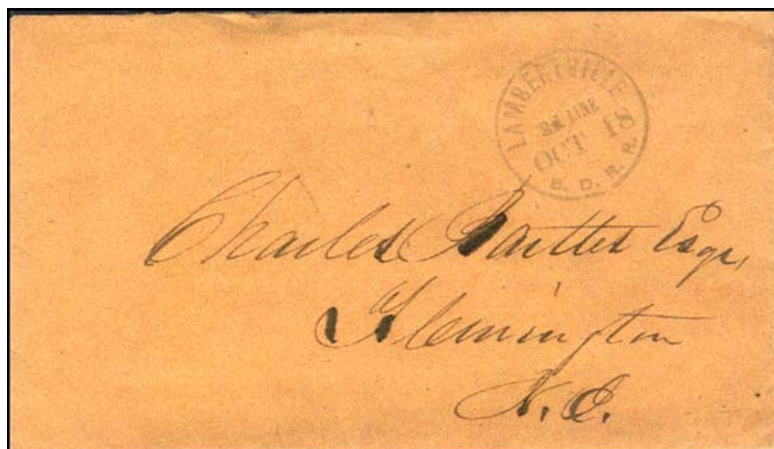 LAMBERTVILLE
2d LINE
OCT 18
B. D. R. R.
Charles Bartles Esqr,
Flemington
N. J.